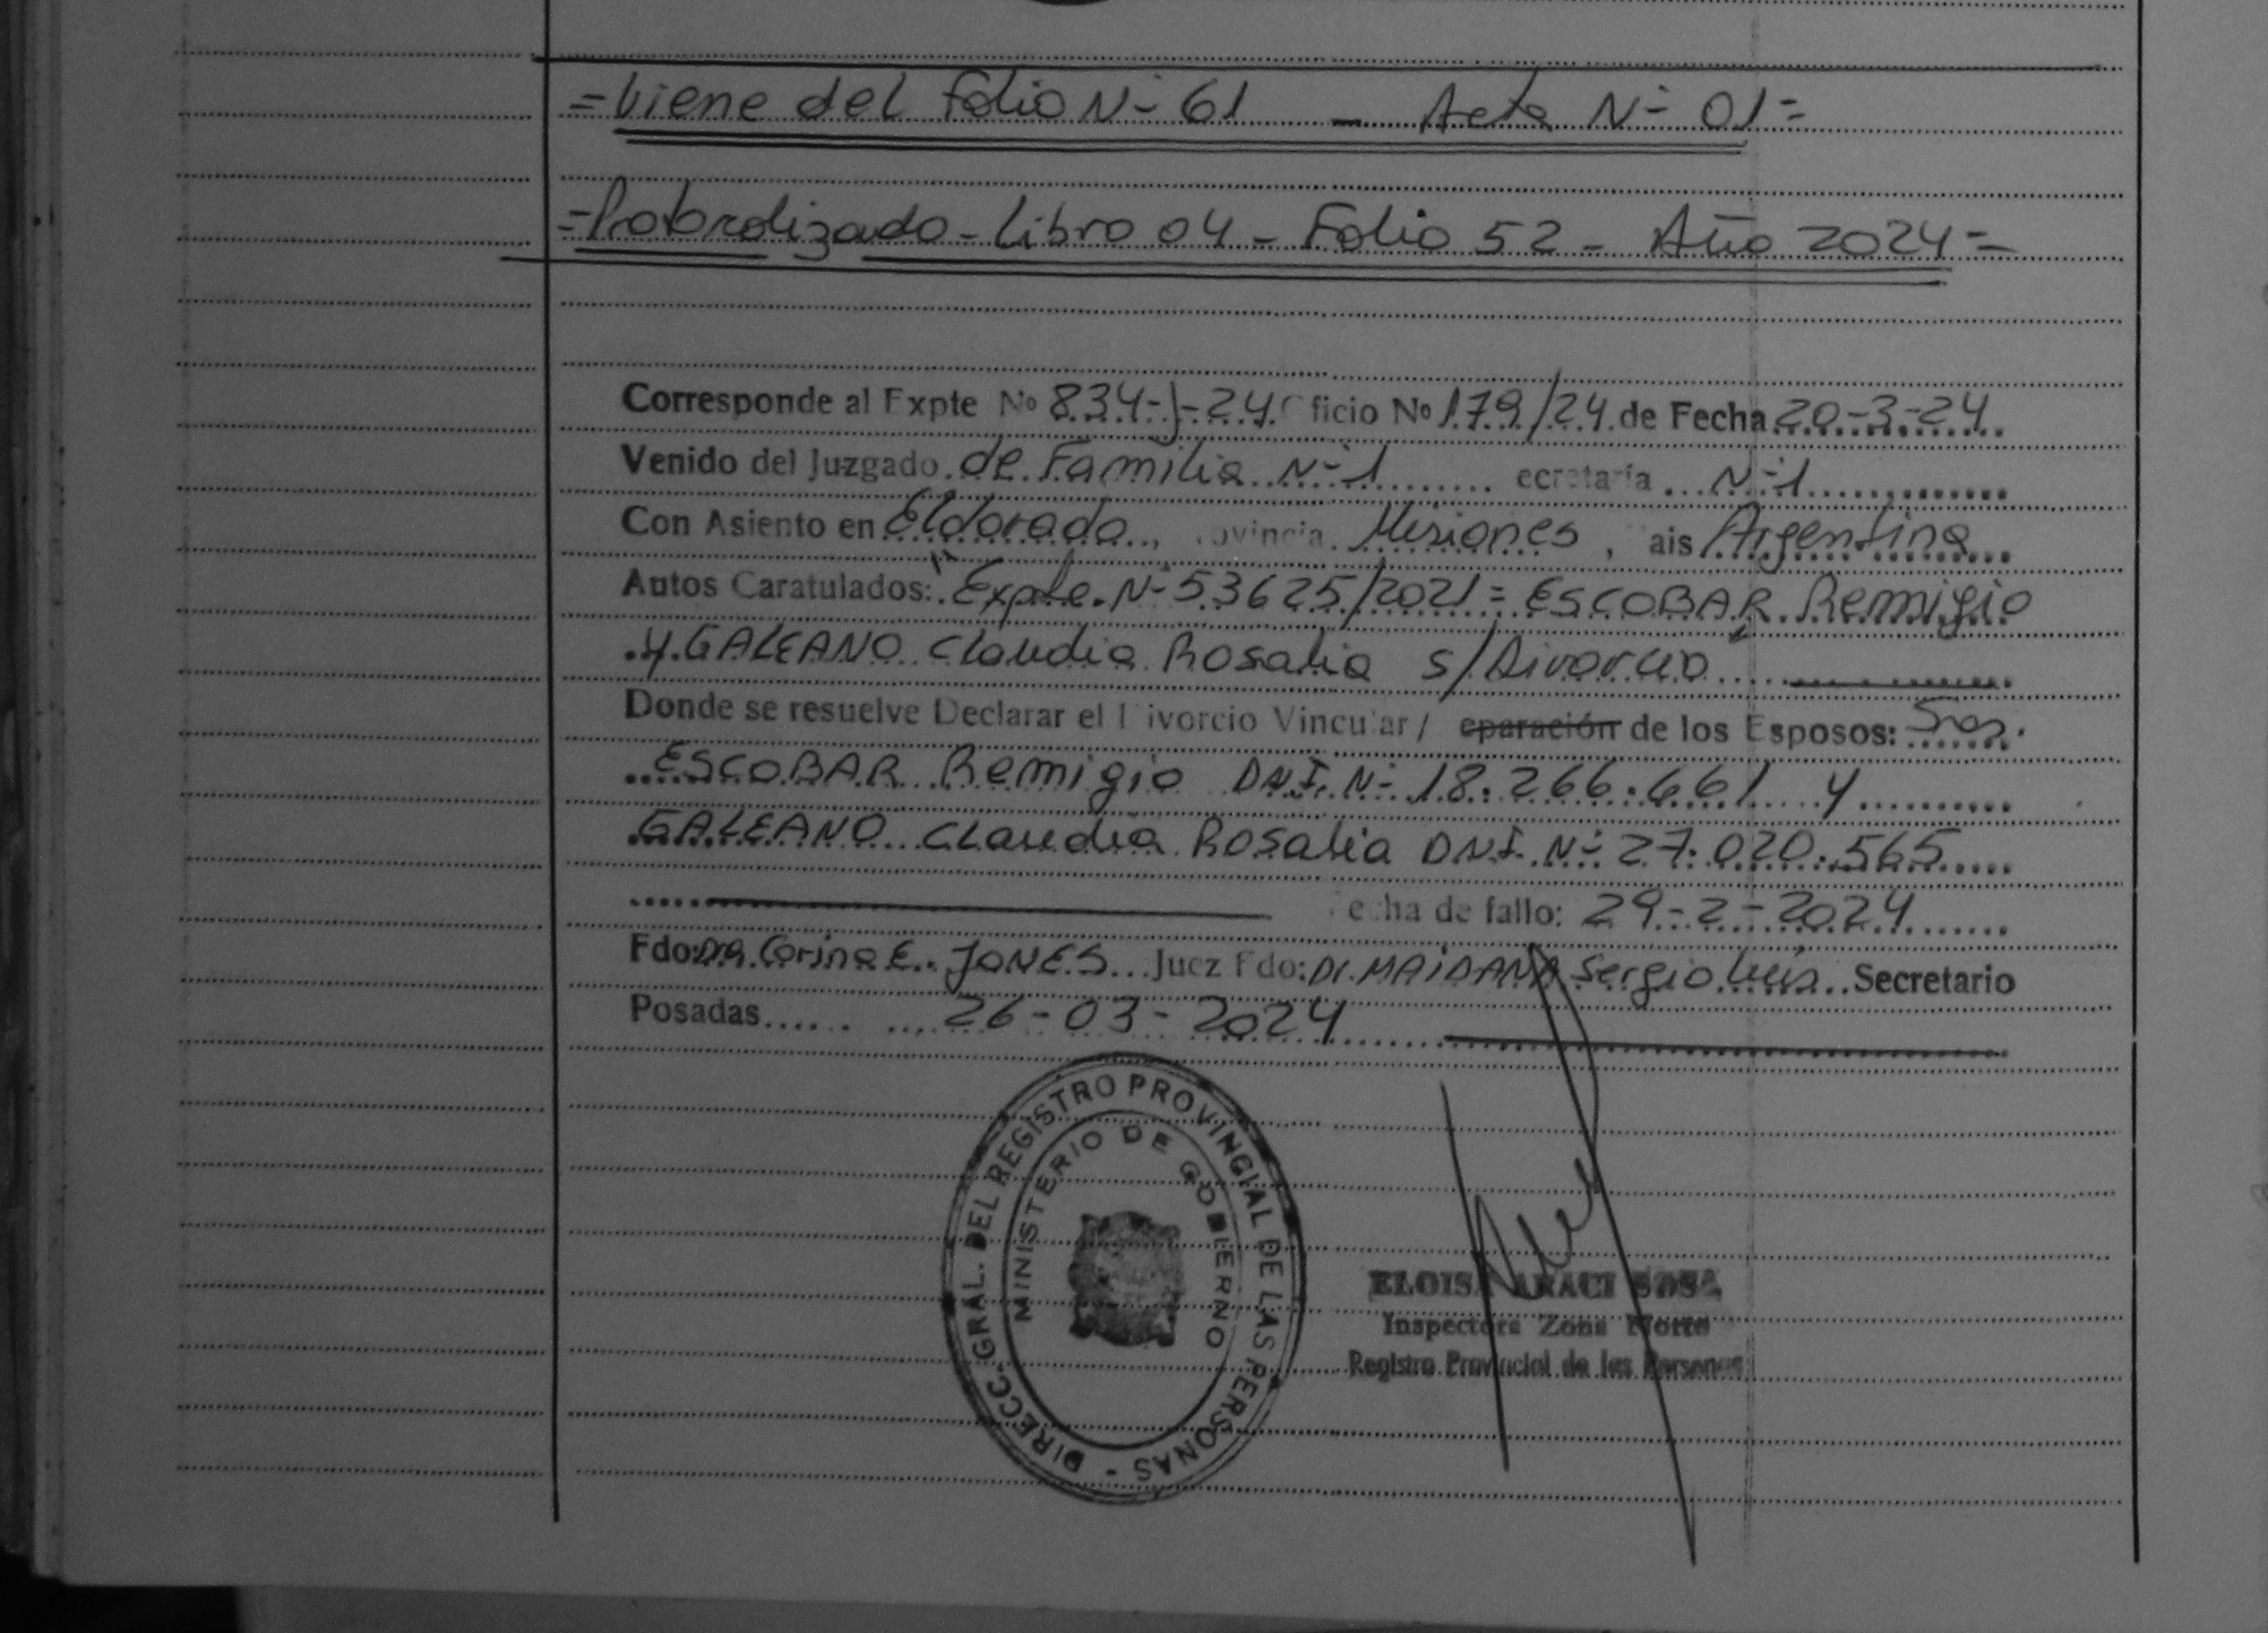 =Viene del Folio N- 61 - Acta N- 01=
=Protocolizado - Libro 04 - Folio 52 - Año 2024=
Corresponde al Expte Nº 834-J-24. Oficio Nº 179/24 de Fecha 20-3-24
Venido del Juzgado de Familia N-1 ecretaría N-1
Con Asiento en Eldorado, rovincia Misiones, ais Argentina
Autos Caratulados: "Expte. N- 53625/2021 = ESCOBAR Remigio
y GALEANO Claudia Rosalia s/Divorcio
Donde se resuelve Declarar el Divorcio Vincular / eparación de los Esposos: Sres.
ESCOBAR Remigio DNI. N- 18.266.661 y
GALEANO Claudia Rosalia DNI. N- 27.020.565
echa de fallo: 29-2-2024
Fdo: Dra. Corina E. JONES Juez Fdo: Dr. MAIDANA Sergio Luis Secretario
Posadas 26-03-2024
DIRECC. GRAL. DEL REGISTRO PROVINCIAL DE LAS PERSONAS -
MINISTERIO DE GOBIERNO
ELOISA ARACI SOSA
Inspectora Zona Norte
Registro Provincial de las Personas